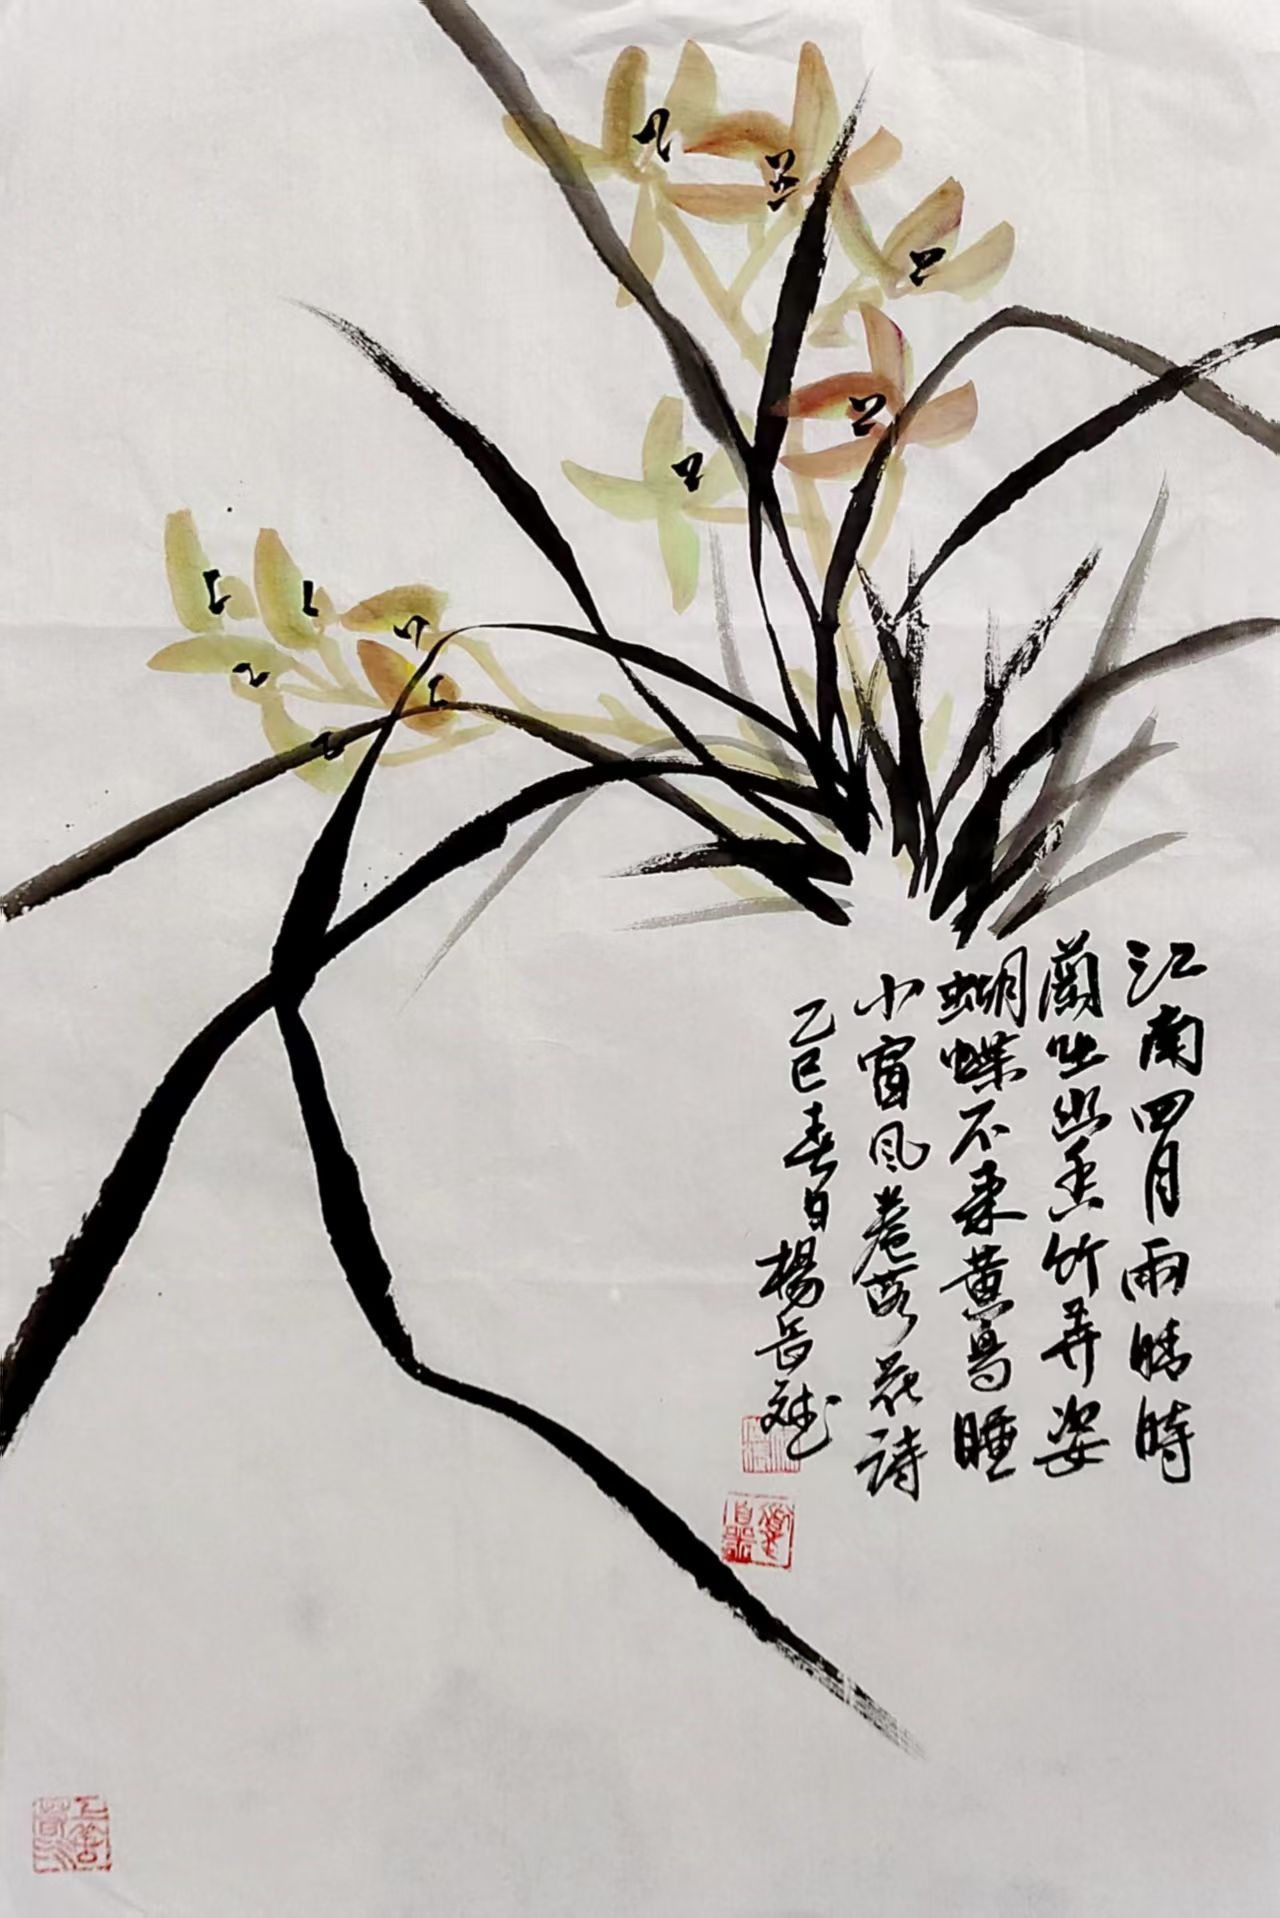 江南四月雨晴時
蘭吐幽香竹弄姿
蝴蝶不来黄鳥睡
小窗風卷落花诗
乙巳春日楊岳斌